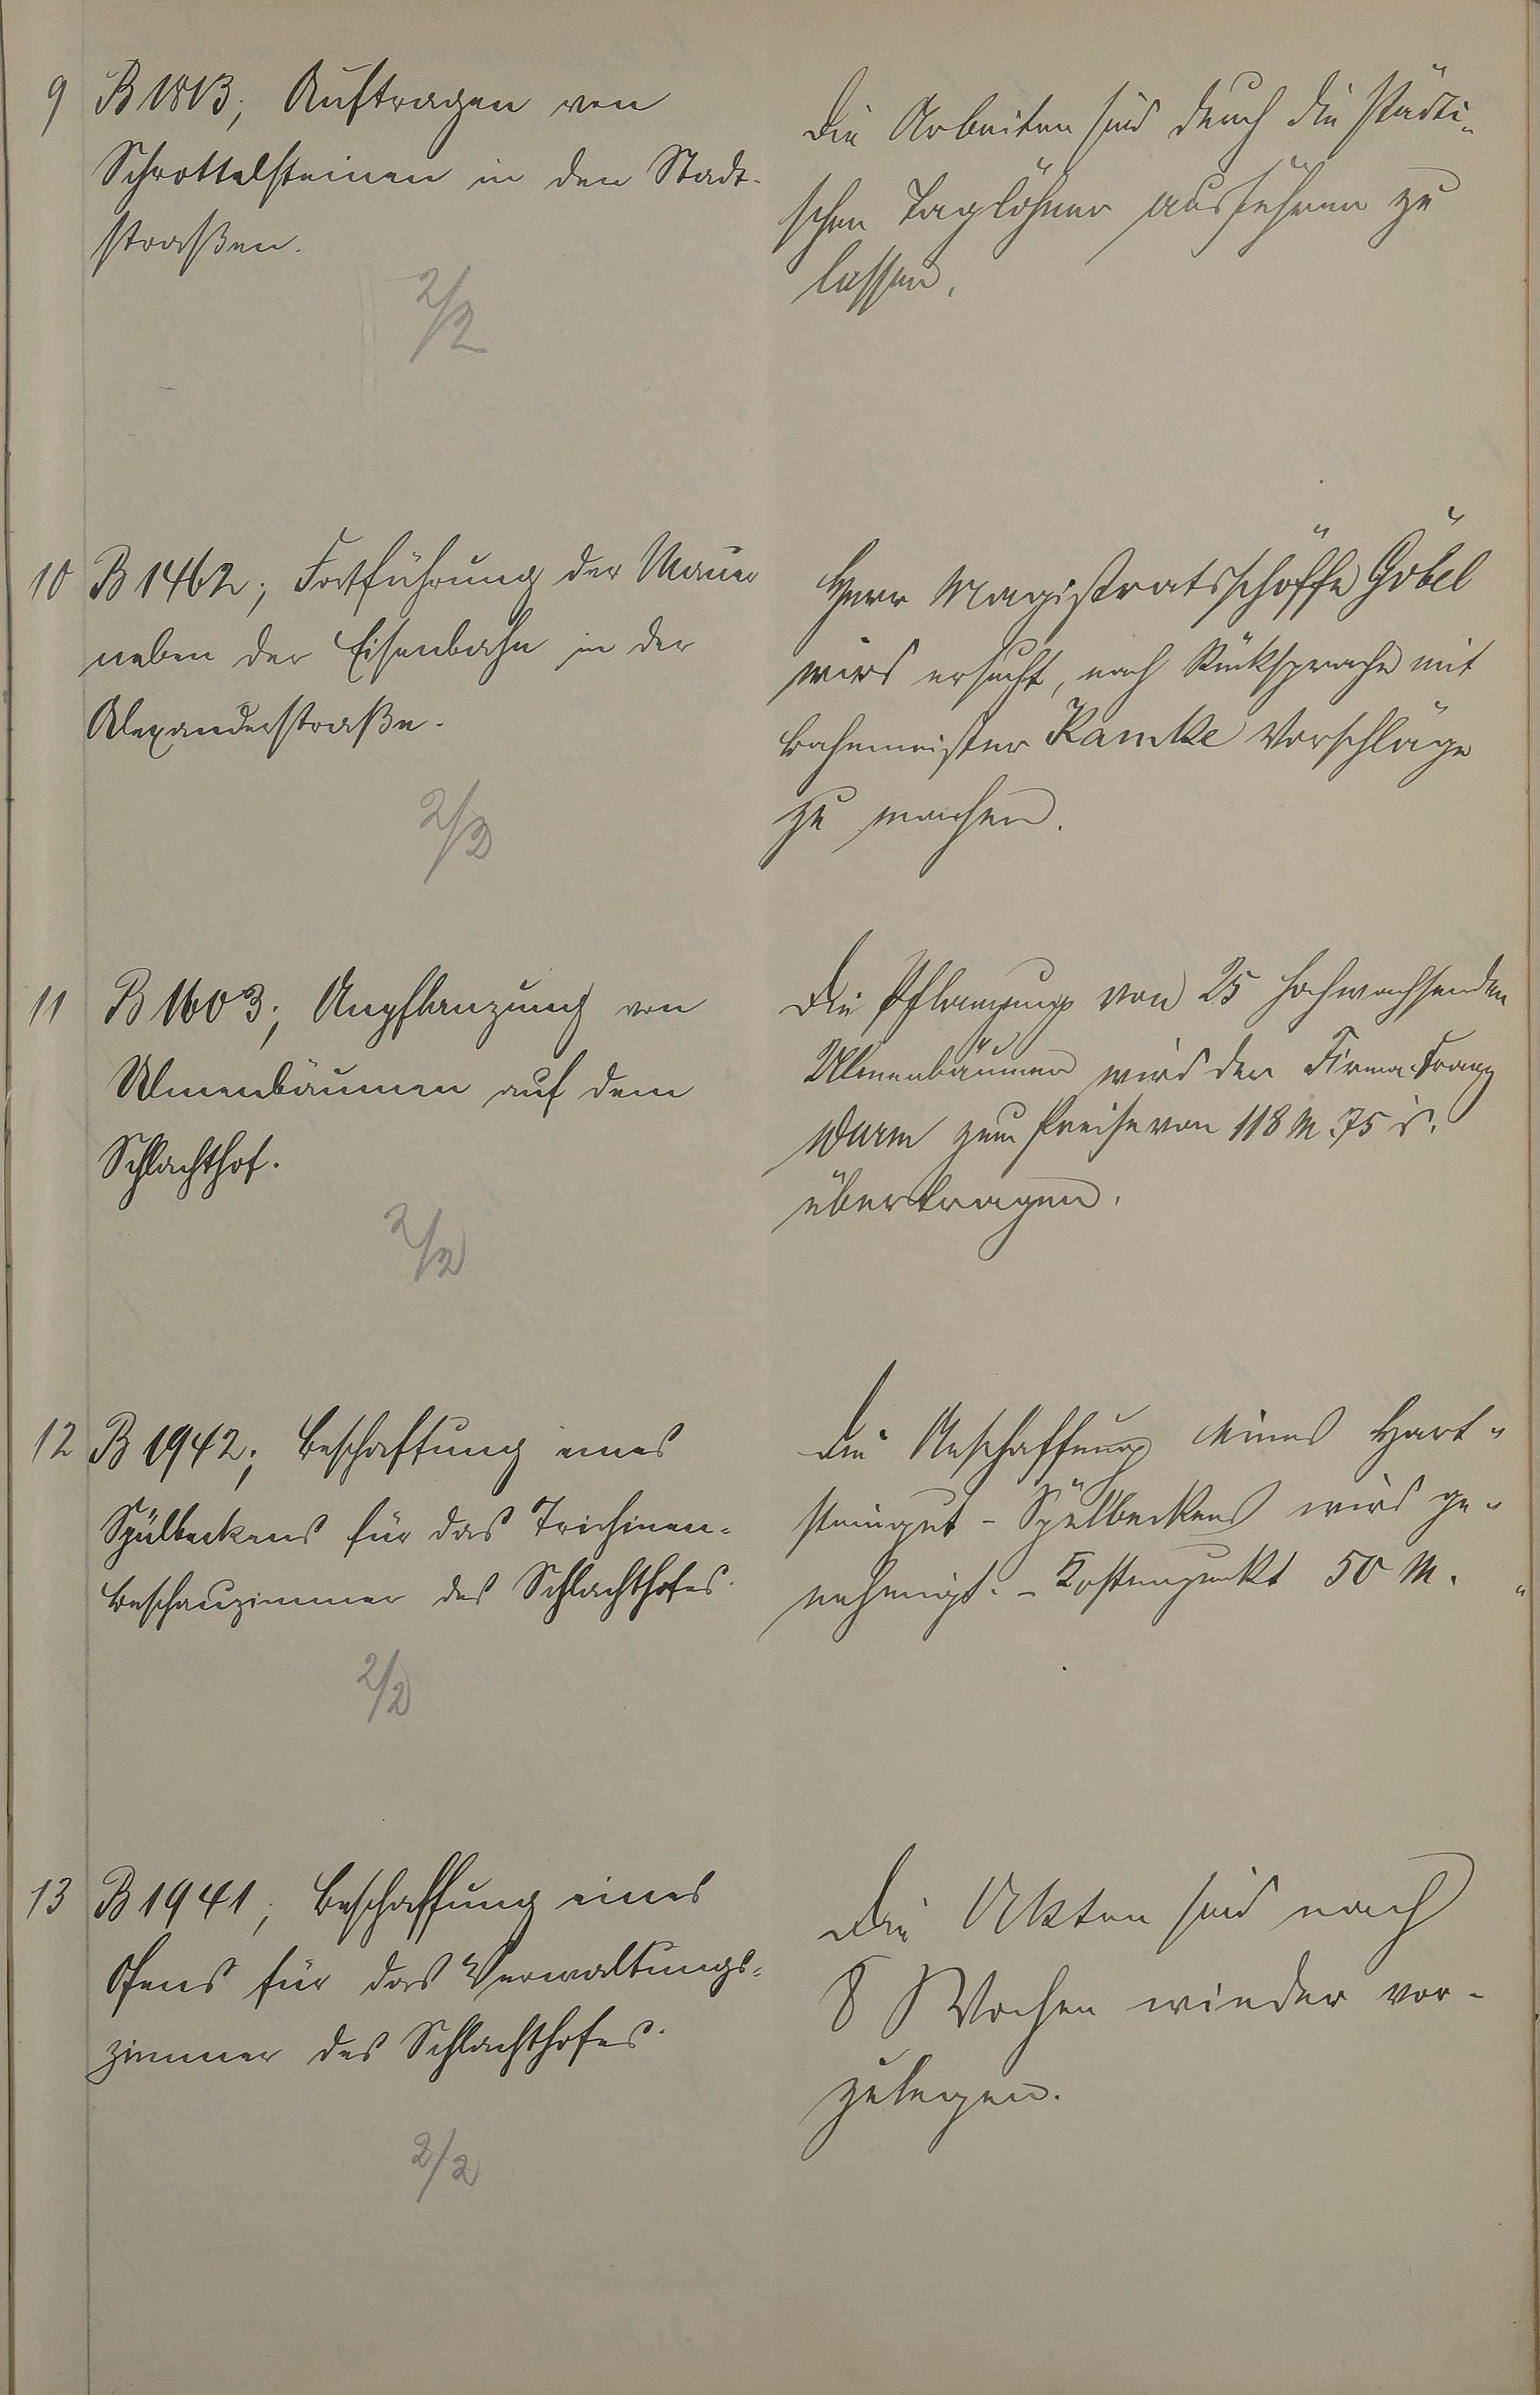 9 B 1813; Auftragen von
Schrottelsteinen in den Stadt-
straßen.
2/2
Die Arbeiten sind durch die städti-
schen Taglöhner ausführen zu
lassen.
10 B 1462; Fortführung der Mauer
neben der Eisenbahn in der
Alexanderstraße.
2/2
Herr Magistratsschöffe Göbel
wird ersucht, nach Rücksprache mit
Bahnmeister Ramke Vorschläge
zu machen.
11 B 1603; Anpflanzung von
Ulmenbäumen auf dem
Schlachthof.
2/2
Die Pflanzung von 25 hochwachsenden
Ulmenbäumen wird der Firma Franz
Wurm zum Preise von 118 M. 75 d.
übertragen.
12 B 1942; Beschaffung eines
Spülbeckens für das Trichinen-
beschauzimmer des Schlachthofes.
2/2
Die Anschaffung eines Hart-
steingut-Spülbeckens wird ge-
nehmigt. - Kostenpunkt 50 M. "
13 B 1941; Beschaffung eines
Ofens für das Verwaltungs-
zimmer des Schlachthofes.
2/2
Die Akten sind nach
8 Wochen wieder vor-
zulegen.